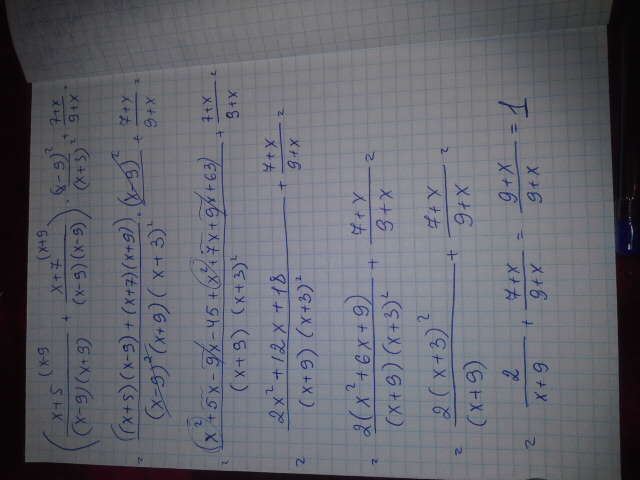 ((x+5)^(x-9 / (x-9)(x+9) + x+7^(x+9 / (x-9)(x-9)) · (x-9)² / (x+3)² + 7+x / 9+x =
= ((x+5)(x-9) + (x+7)(x+9)) · (x-9)² / (x-9)² (x+9) (x+3)² + 7+x / 9+x =
= (x²+5x-9x-45+x²+7x+9x+63) / (x+9) (x+3)² + 7+x / 9+x =
= 2x²+12x+18 / (x+9) (x+3)² + 7+x / 9+x =
= 2(x²+6x+9) / (x+9) (x+3)² + 7+x / 9+x =
= 2(x+3)² / (x+9) + 7+x / 9+x =
= 2 / x+9 + 7+x / 9+x = 9+x / 9+x = 1